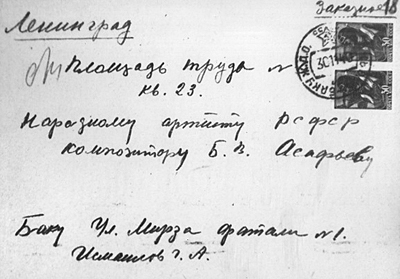 Заказное
Ленинград
Площадь труда №
кв. 23.
Народному артисту РСФСР
композитору Б. В. Асафьеву
Баку Ул. Мирза фатали №1.
Исмаилов г. А.